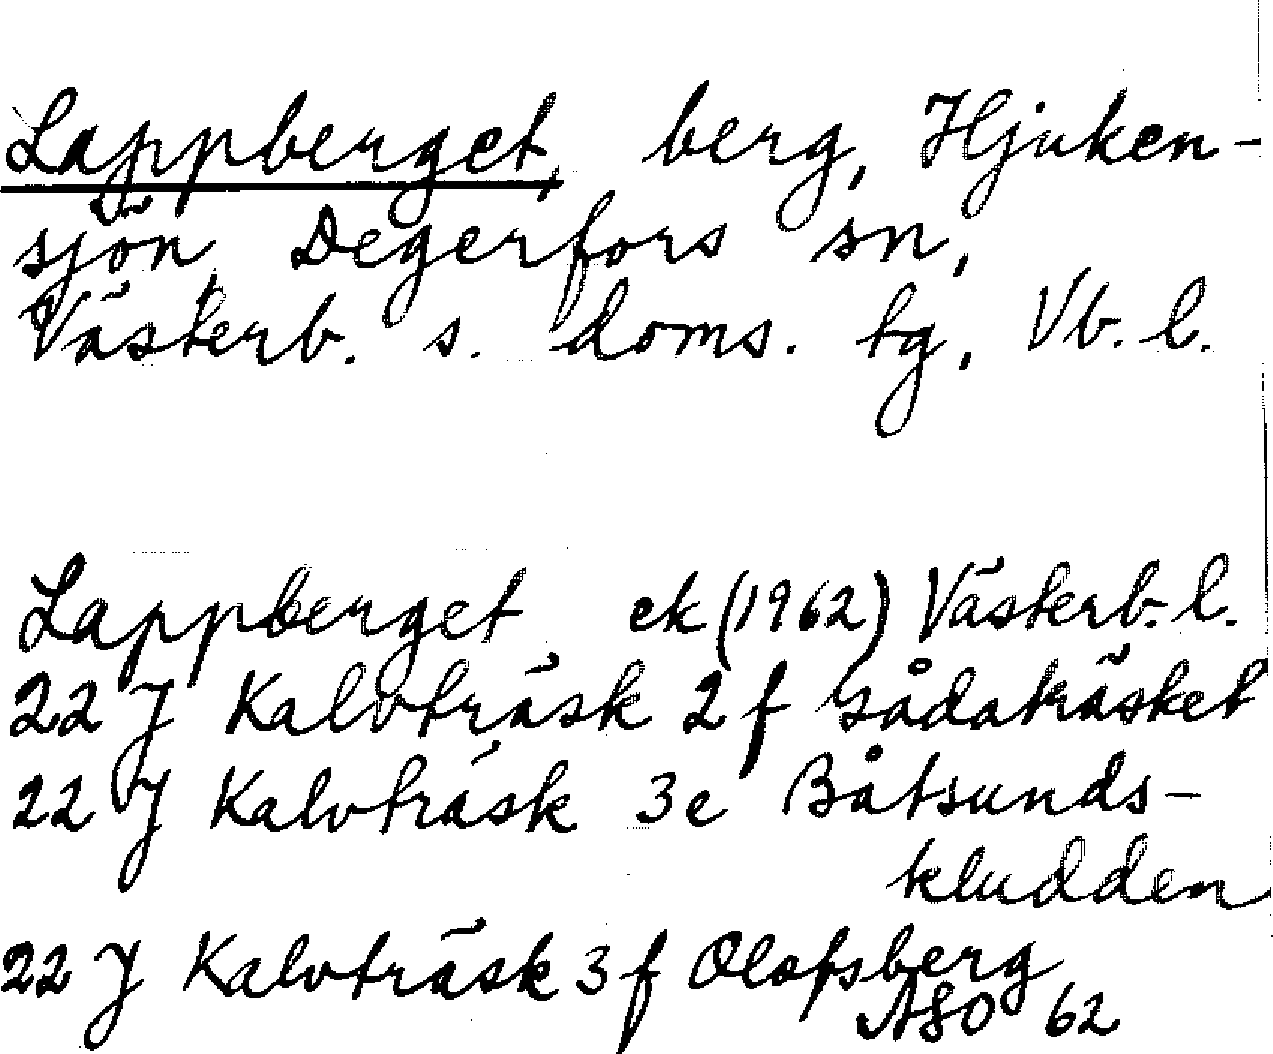 Lappberget, berg, Hjuken-
sjön, Degerfors sn,
Västerb. s. doms. tg, Vb. l.
Lappberget ek (1962) Västerb. l.
22 J Kalvträsk 2 f Sådaträsket
22 J Kalvträsk 3 e Båtsunds-
kludden
22 J Kalvträsk 3 f Olofsberg
62